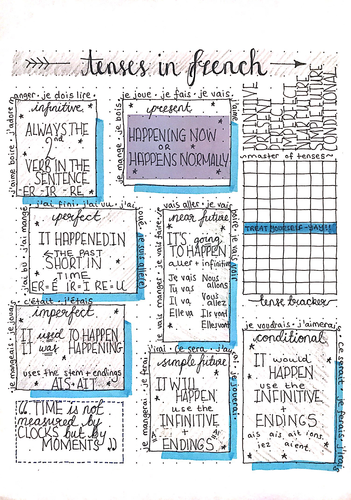 tenses in french
anger · je dois lire ·
infinitive
ALWAYS THE
2nd
VERB IN THE
SENTENCE
-ER -IR -RE
j'aime boire · j'adore
je joue · je fais · je vais
present
HAPPENING NOW
OR
HAPPENS NORMALLY
je mange · je bois
j'aime
PRESENT
PERFECT
IMPERFECT
SIMPLE FUTURE
CONDITIONAL
~master of tenses~
TREAT YOURSELF - YAY!!
tense tracker
j'ai fini · j'ai
perfect
IT HAPPENED IN
THE PAST
SHORT IN
TIME
ER-É IR-I RE-U
j'ai bu · j'ai mangé
vais aller · je vais
near future
IT'S going
TO HAPPEN
aller + infinitive
Je vais Nous
Tu vas allons
Il va Vous
allez
Elle va Ils vont
Elles vont
vais manger · je vais faire
c'était · j'étais
imperfect
IT used TO HAPPEN
was HAPPENING
uses the stem + endings
AIS · AIT
je mangeais · je faisais
j'irai · ce sera · j'au
simple future
IT WILL
HAPPEN
use the
INFINITIVE
+
ENDINGS
je mangerai · je ferai
je jouerai
je voudrais · j'aimerai
conditional
IT would
HAPPEN
use the
INFINITIVE
+
ENDINGS
ais ais ait ions
iez aient
ce serait · je ferais
"TIME is not
measured by
CLOCKS but by
MOMENTS"